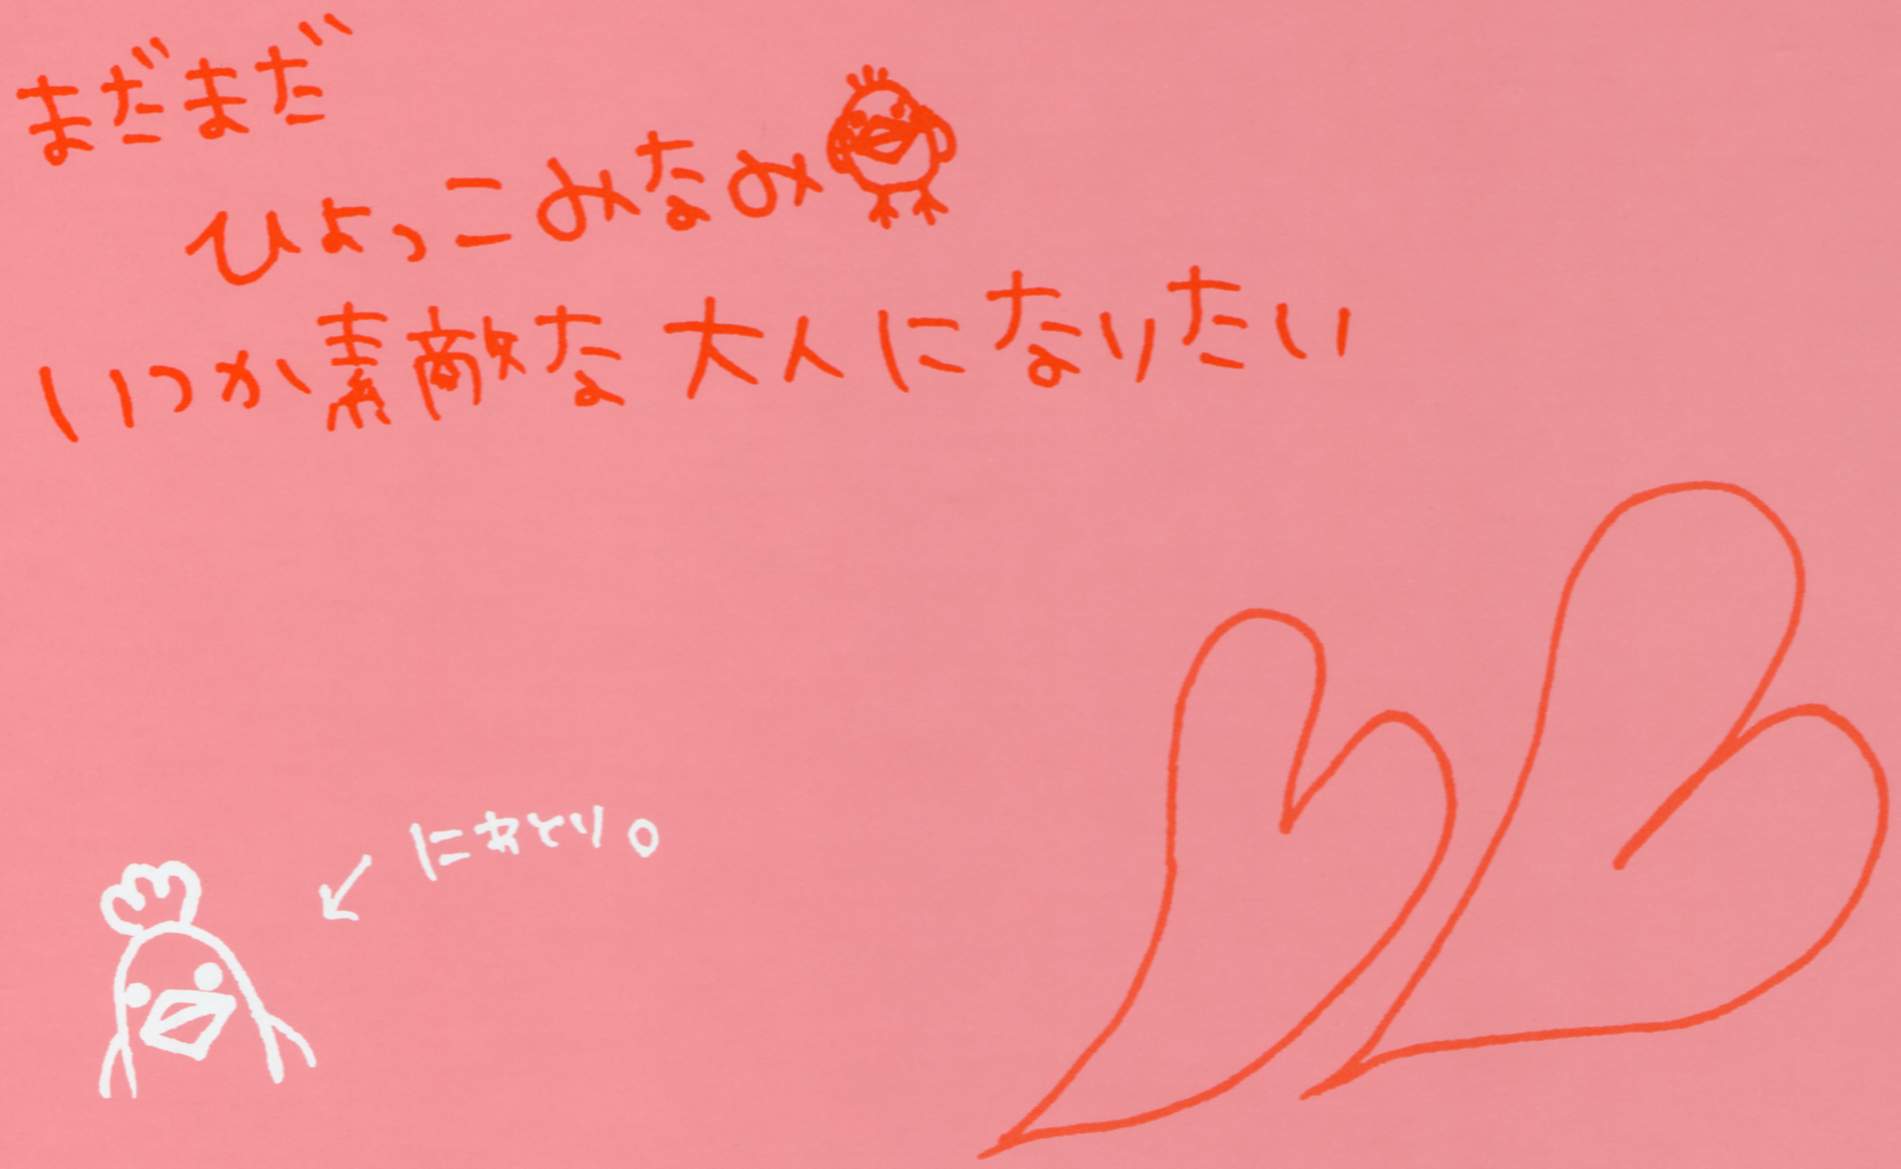 まだまだ
ひよっこみなみ
いつか素敵な大人になりたい
にわとり。